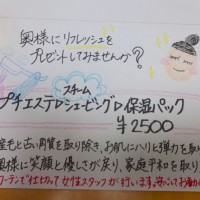 奥様にリフレッシュを
プレゼントしてみませんか?
スチーム
プチエステ▷シェービング▷保湿パック
¥2500
産毛と古い角質を取り除き、お肌にハリと弾力を取り
奥様に笑顔と優しさが戻り、家庭平和を取り
カーテンで仕切って女性スタッフが行います。安心してお